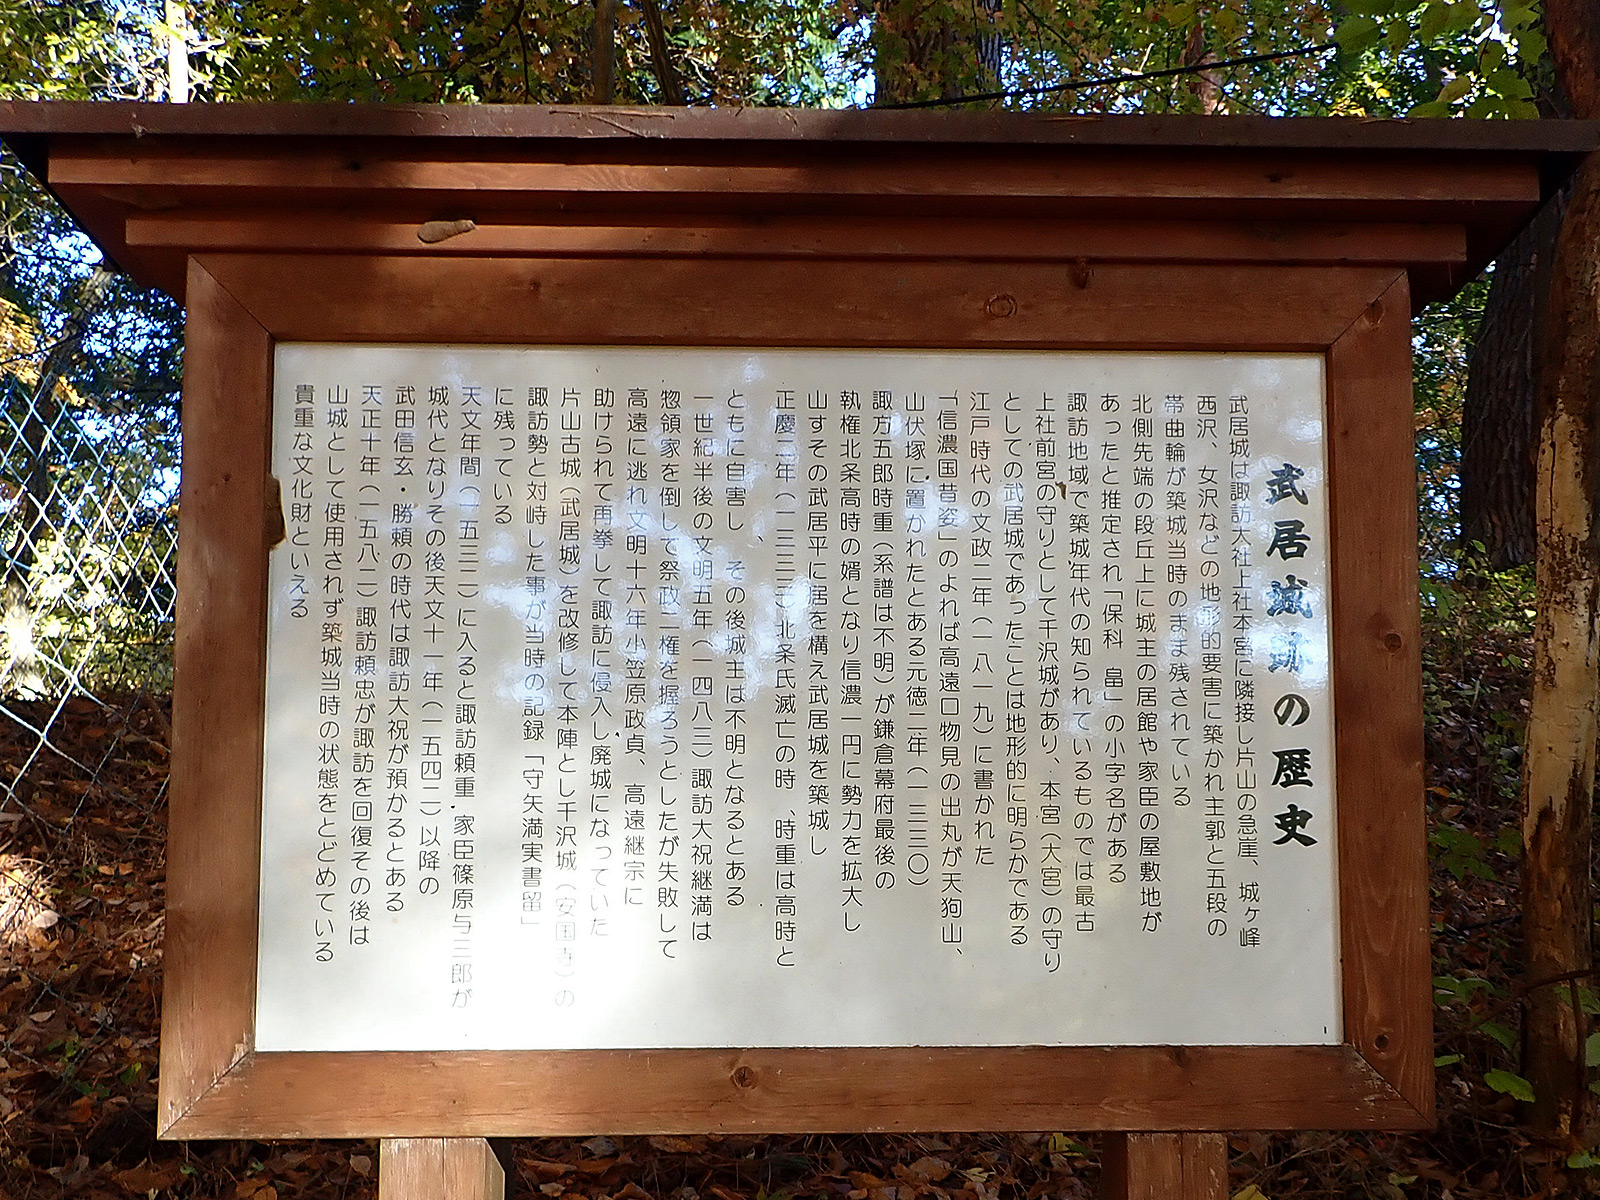 武居城跡の歴史
武居城は諏訪大社上社本宮に隣接し片山の急崖、城ヶ峰
西沢、女沢などの地形的要害に築かれ主郭と五段の
帯曲輪が築城当時のまま残されている
北側先端の段丘上に城主の居館や家臣の屋敷地が
あったと推定され「保科 畠」の小字名がある
諏訪地域で築城年代の知られているものでは最古
上社前宮の守りとして干沢城があり、本宮（大宮）の守り
としての武居城であったことは地形的に明らかである
江戸時代の文政二年（一八一九）に書かれた
「信濃国昔姿」のよれば高遠口物見の出丸が天狗山、
山伏塚に置かれたとある元徳二年（一三三〇）
諏方五郎時重（系譜は不明）が鎌倉幕府最後の
執権北条高時の婿となり信濃一円に勢力を拡大し
山すその武居平に居を構え武居城を築城し
正慶二年（一三三三）北条氏滅亡の時、時重は高時と
ともに自害し、その後城主は不明となるとある
一世紀半後の文明五年（一四八三）諏訪大祝継満は
惣領家を倒して祭政二権を握ろうとしたが失敗して
高遠に逃れ文明十六年小笠原政貞、高遠継宗に
助けられて再挙して諏訪に侵入し廃城になっていた
片山古城（武居城）を改修して本陣とし干沢城（安国寺）の
諏訪勢と対峙した事が当時の記録「守矢満実書留」
に残っている
天文年間（一五三二）に入ると諏訪頼重,家臣篠原与三郎が
城代となりその後天文十一年（一五四二）以降の
武田信玄・勝頼の時代は諏訪大祝が預かるとある
天正十年（一五八二）諏訪頼忠が諏訪を回復その後は
山城として使用されず築城当時の状態をとどめている
貴重な文化財といえる